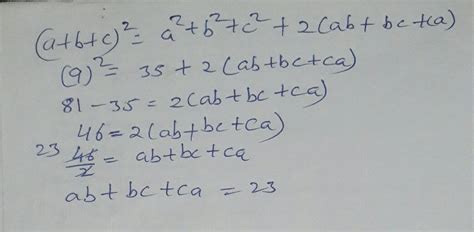 (a+b+c)² = a²+b²+c² + 2(ab+bc+ca)
(9)² = 35 + 2(ab+bc+ca)
81-35 = 2(ab+bc+ca)
46 = 2(ab+bc+ca)
23 46/2 = ab+bc+ca
ab+bc+ca = 23